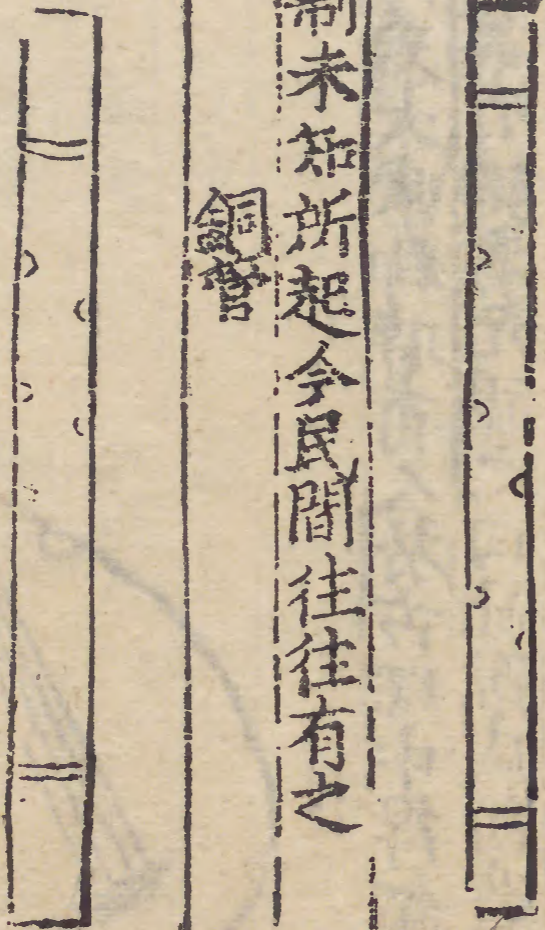 制未知所起今民間往往有之
銅管